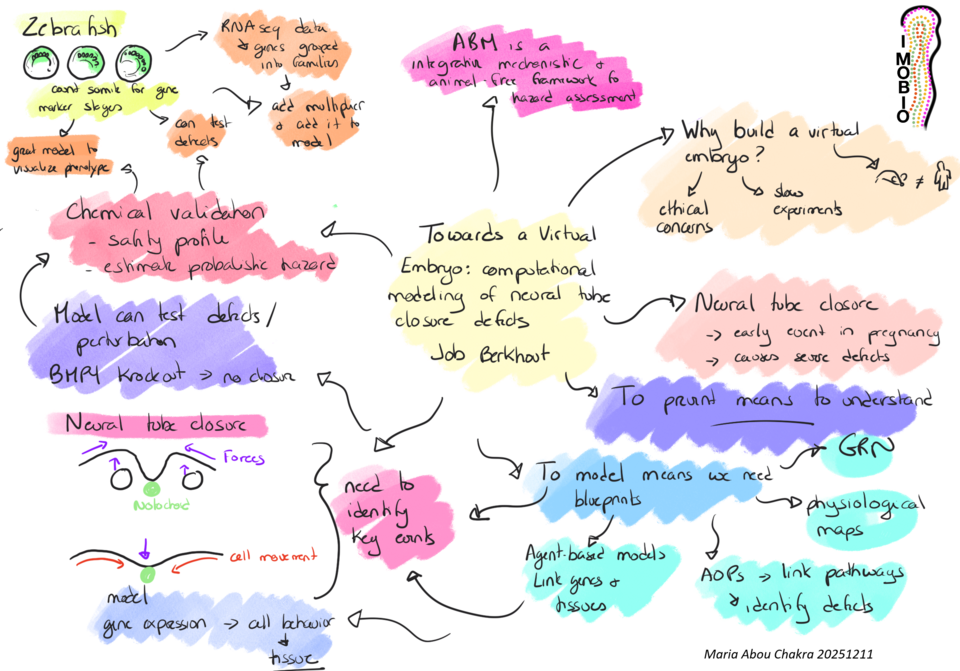 Zebrafish
count somite for gene
marker stages
great model to
visualize phenotype
RNAseq data
↳ genes grouped
into families
add multiplier
& add it to
model
can test
defects
ABM is a
integrative mechanistic &
animal-free framework for
hazard assessment
IMOBIO
Why build a virtual
embryo?
ethical
concerns
slow
experiments
≠
Chemical validation
- safety profile
- estimate probalistic hazard
Towards a Virtual
Embryo: computational
modeling of neural tube
closure defects
Job Berkhout
Neural tube closure
→ early event in pregnancy
→ causes severe defects
Model can test defects/
perturbation
BMP4 knockout → no closure
To prevent means to understand
Neural tube closure
Forces
Notochord
cell movement
need to
identify
key events
To model means we need
blueprints
GRN
physiological
maps
Agent-based models
Link genes &
tissues
AOPs → link pathways
↳ identify defects
model
gene expression → cell behavior
↓
tissue
Maria Abou Chakra 20251211